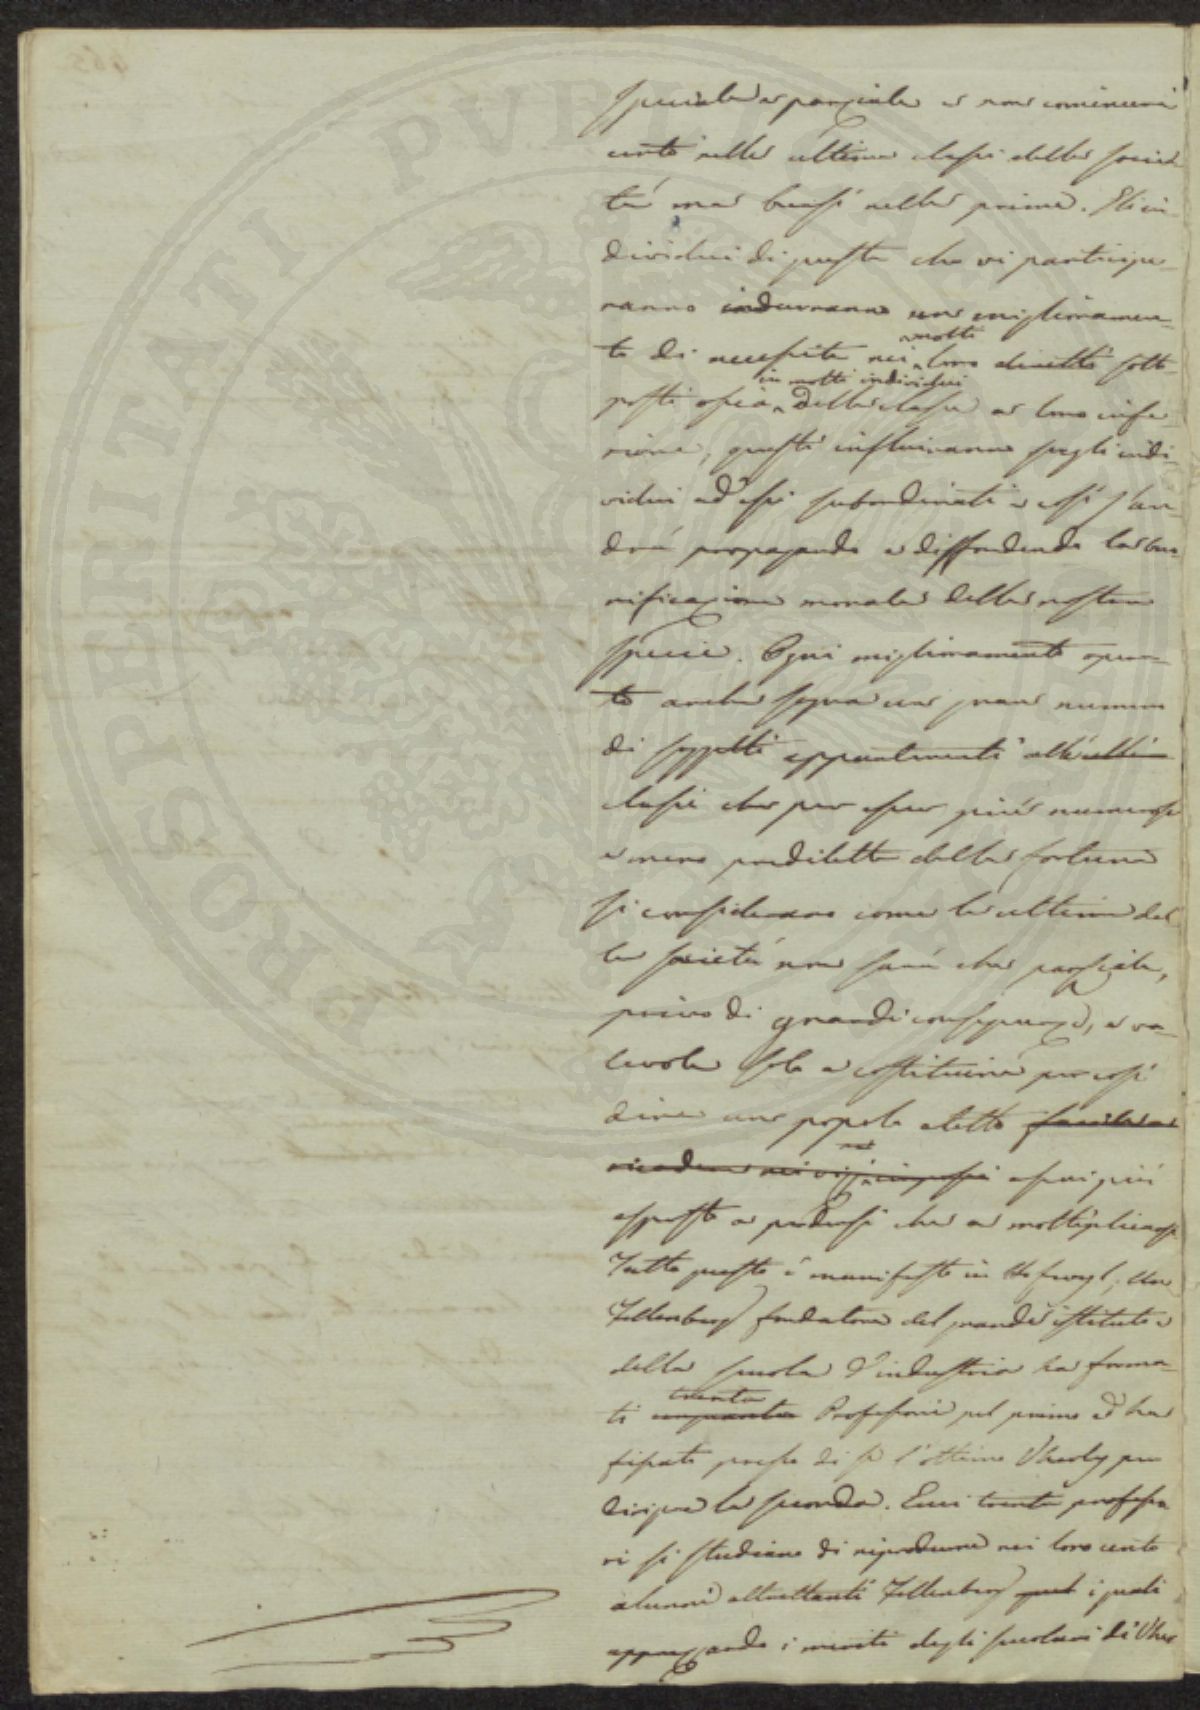 speciale e parziale e non comincerà
certo nelle ultime classi della socie
tà ma bensì nelle prime. Gli in-
dividui di queste che vi participe-
ranno indurranno un miglioramen-
to di necessità nei molti loro diretti sotto
posti ossia in molti individui della classe a loro infe
riore, questi influiranno sugli indi-
vidui ad essi subordinati e così s'an-
drà propagando e diffondendo la bo
nificazione morale della nostra
specie. Ogni miglioramento opera-
to anche sopra un gran numero
di soggetti appartenenti alle ultime
classi che per esser più numerose
e meno predilette della fortuna
si considerano come le ultime del
la società non sarà che parziale,
privo di grandi conseguenze, e va-
levole solo a costituire per così
dire un popolo eletto facile a
ricadere nei vizj assai più
esposto a perdersi che a moltiplicarsi
Tutto questo è manifesto in Hofwyl;
Fellenberg fondatore del grande istituto e
della scuola d'industria ha forma-
ti cinquanta trenta Professori pel primo ed ha
fissato presso di sè l'ottimo Vherly per
dirigere la seconda. Essi trenta professo
ri si studiano di riprodurre nei loro cento
alunni altrettanti Fellenberg i quali
apprezzando i meriti degli scolari di Vher